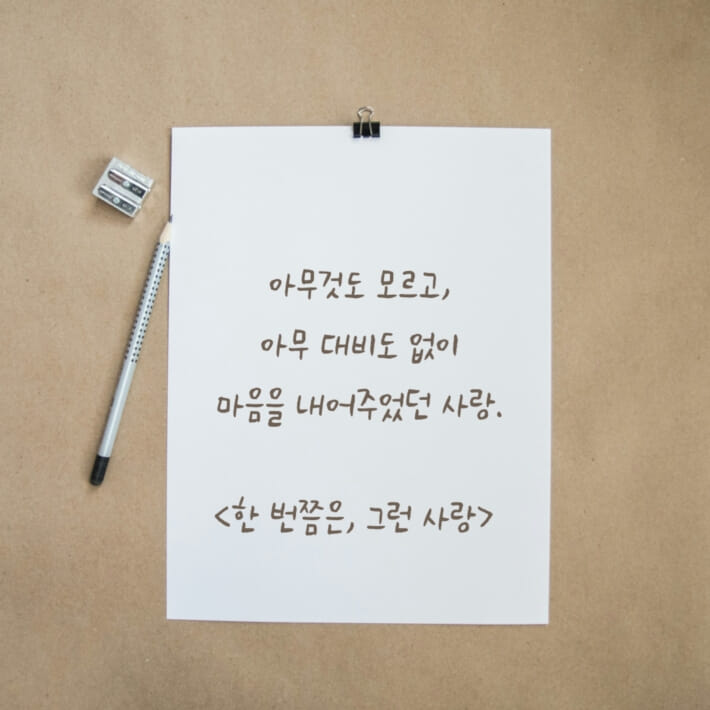 아무것도 모르고,
아무 대비도 없이
마음을 내어주었던 사랑.
<한 번쯤은, 그런 사랑>